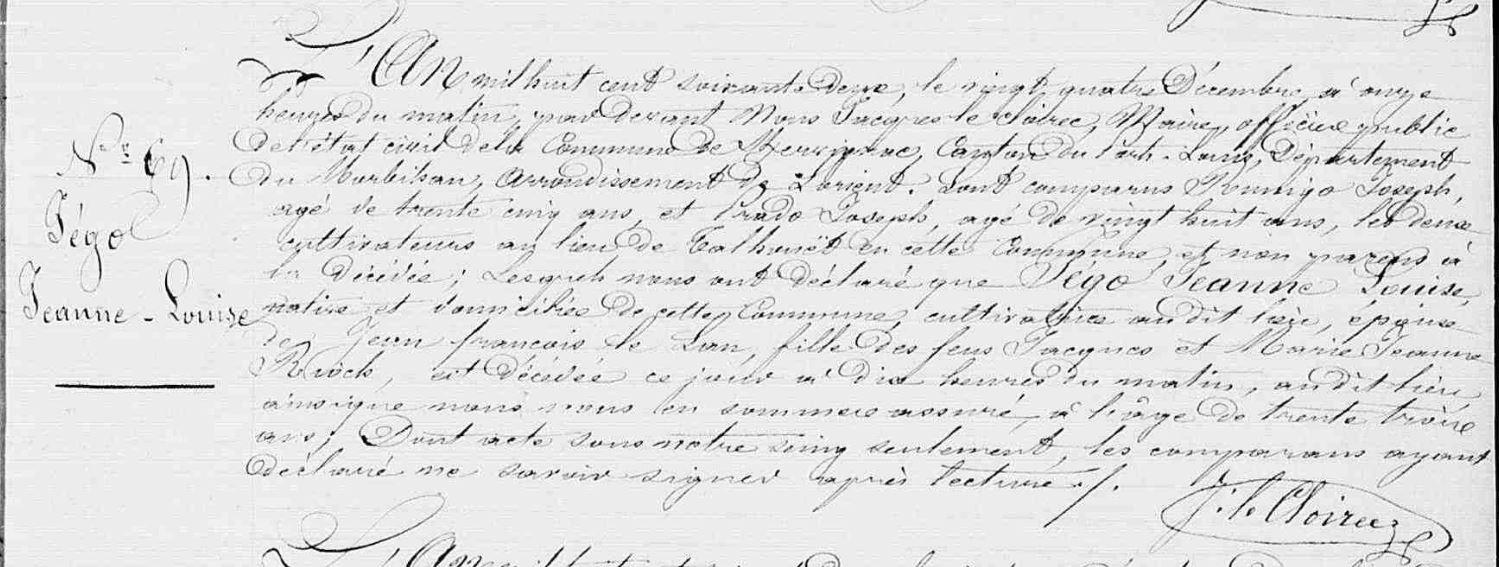 N.r 69.
Jégo
Jeanne-Louise
L'An mil huit cent soixante deux, le vingt quatre Décembre, à onze
heures du matin, par devant Nous Jacques le Cloirec, Maire, officier public
de l'état civil de la Commune de Merlévenez, Canton du Port-Louis, Département
du Morbihan, Arrondissement de Lorient. Sont comparus Rumigo Joseph,
agé de trente cinq ans, et Prado Joseph, agé de vingt huit ans, les deux
cultivateurs au lieu de Talhouët en cette Commune, et non parens à
la décédée; Lesquels nous ont déclaré que Jégo Jeanne Louise,
native et domiciliée de cette Commune, cultivatrice au dit lieu, épouse
de Jean françois le Lan, fille des feus Jacques et Marie Jeanne
est décédée ce jour à dix heures du matin, au dit lieu,
ainsi que nous nous en sommes assuré, à l'âge de trente trois
ans; Dont acte sous notre seing seulement, les comparans ayant
déclaré ne savoir signer après lecture./.
J. le Cloirec
L'An